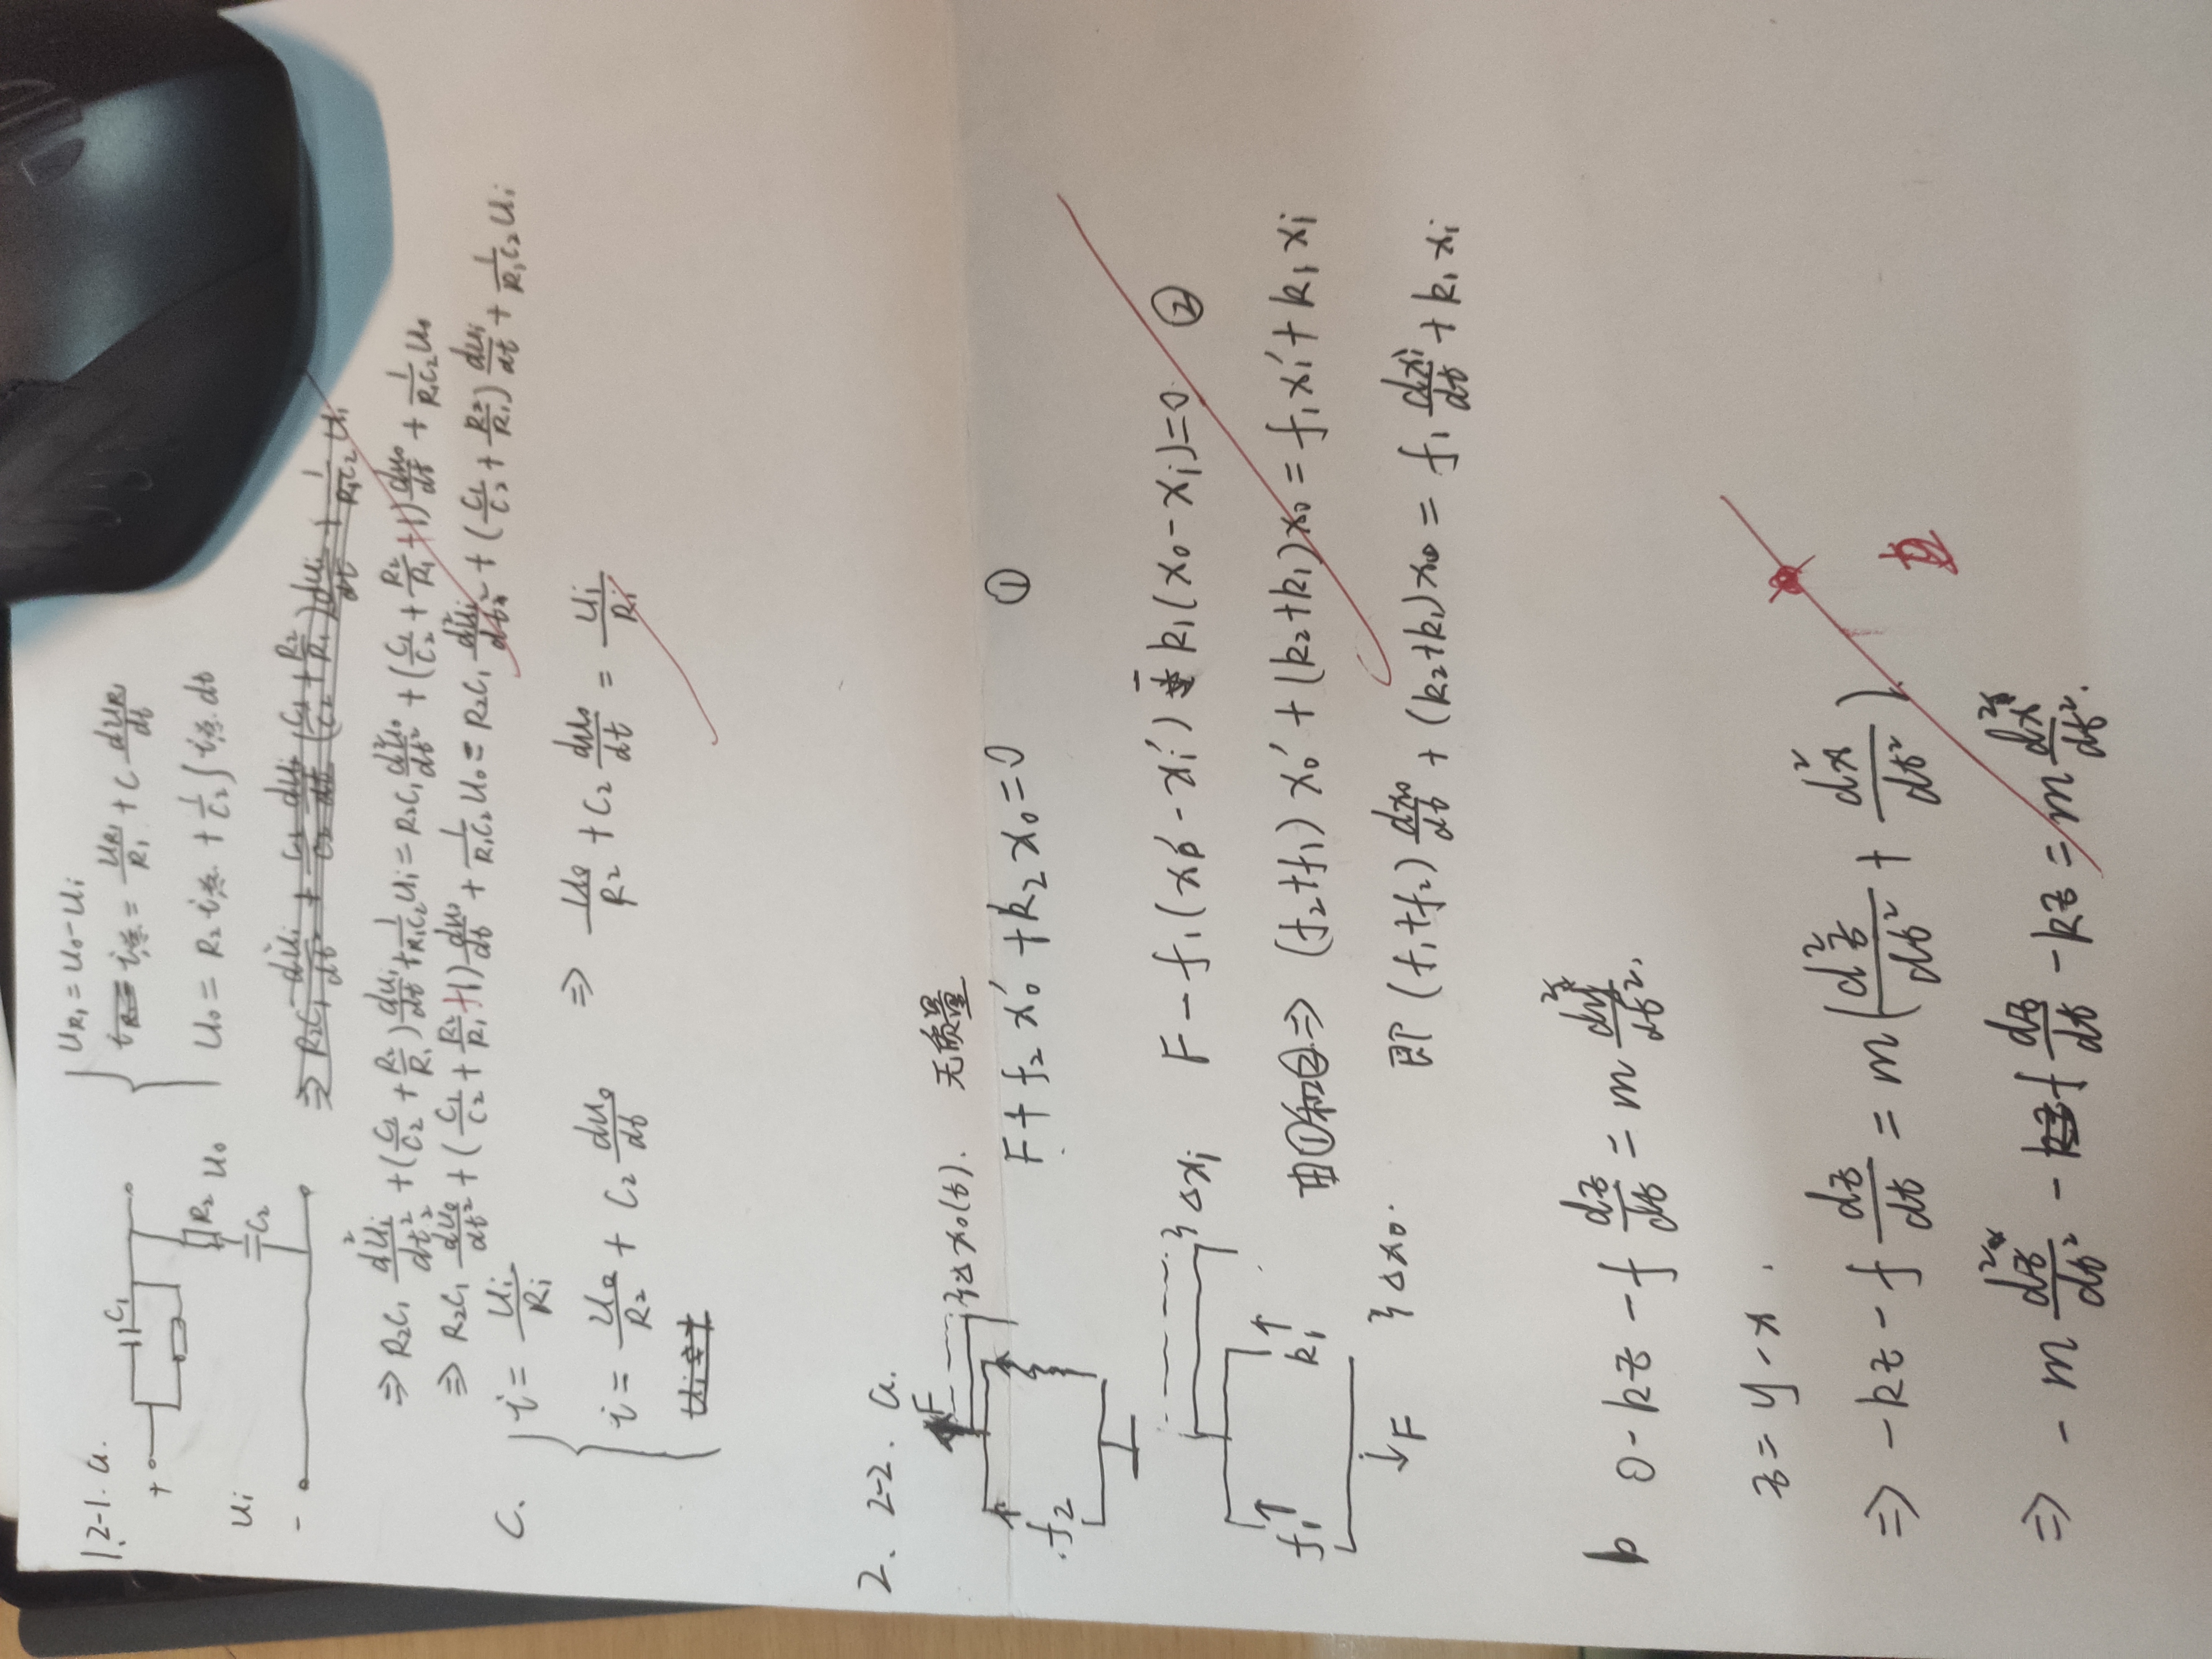 1. 2-1. a.
C₁
+
R₂
C₂
Ui
U₀
-
U_R₁ = U₀ - Ui
i总 = U_R₁/R₁ + C dU_R₁/dt
U₀ = R₂ i总 + 1/C₂ ∫ i总 dt
⇒ R₂C₁ d²Ui/dt² + (C₁/C₂ + R₂/R₁) dui/dt + 1/R₁C₂ Ui = R₂C₁ d²U₀/dt² + (C₁/C₂ + R₂/R₁ + 1) du₀/dt + 1/R₁C₂ U₀
⇒ R₂C₁ d²U₀/dt² + (C₁/C₂ + R₂/R₁ + 1) du₀/dt + 1/R₁C₂ U₀ = R₂C₁ d²Ui/dt² + (C₁/C₂ + R₂/R₁) dui/dt + 1/R₁C₂ Ui
C. i = Ui/Ri
i = U₀/R₂ + C₂ du₀/dt ⇒ U₀/R₂ + C₂ du₀/dt = Ui/Ri
2. 2-2. a.
F
Δx₀(t). 无质量
f₂
F + f₂ x₀' + k₂ x₀ = 0 ①
Δxi
F - f₁(x₀' - xi') - k₁(x₀ - xi) = 0 ②
f₁ k₁
F Δx₀.
由①和②⇒ (f₂+f₁) x₀' + (k₂+k₁) x₀ = f₁ xi' + k₁ xi
即 (f₁+f₂) dx₀/dt + (k₂+k₁) x₀ = f₁ dxi/dt + k₁ xi
b 0 - kz - f dz/dt = m d²y/dt².
z = y - x.
⇒ -kz - f dz/dt = m(d²z/dt² + d²x/dt²)
⇒ -m d²z/dt² - f dz/dt - kz = m d²x/dt².